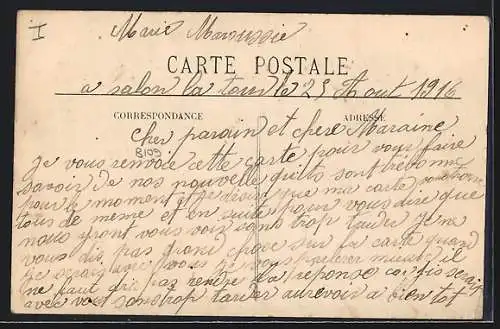 I
Marie Maroussie
CARTE POSTALE
a salon la tour le 25 Aout 1916
CORRESPONDANCE ADRESSE
cher parain et chere Maraine
8109
Je vous renvoie cette carte pour vous faire
savoir de nos nouvelle quils sont tres bonne
pour le moment et je désire que ma carte vous
tous de meme et en suite pour vous dire que
nous yront vous voir sans trop tarder Je ne
vous dis pas grand chose sur la carte quand
Je serais avec vous je vous mieux il
ne faut pas rendre la reponse car Je serais
avec vous sans trop tarder aurevoir a bien tot